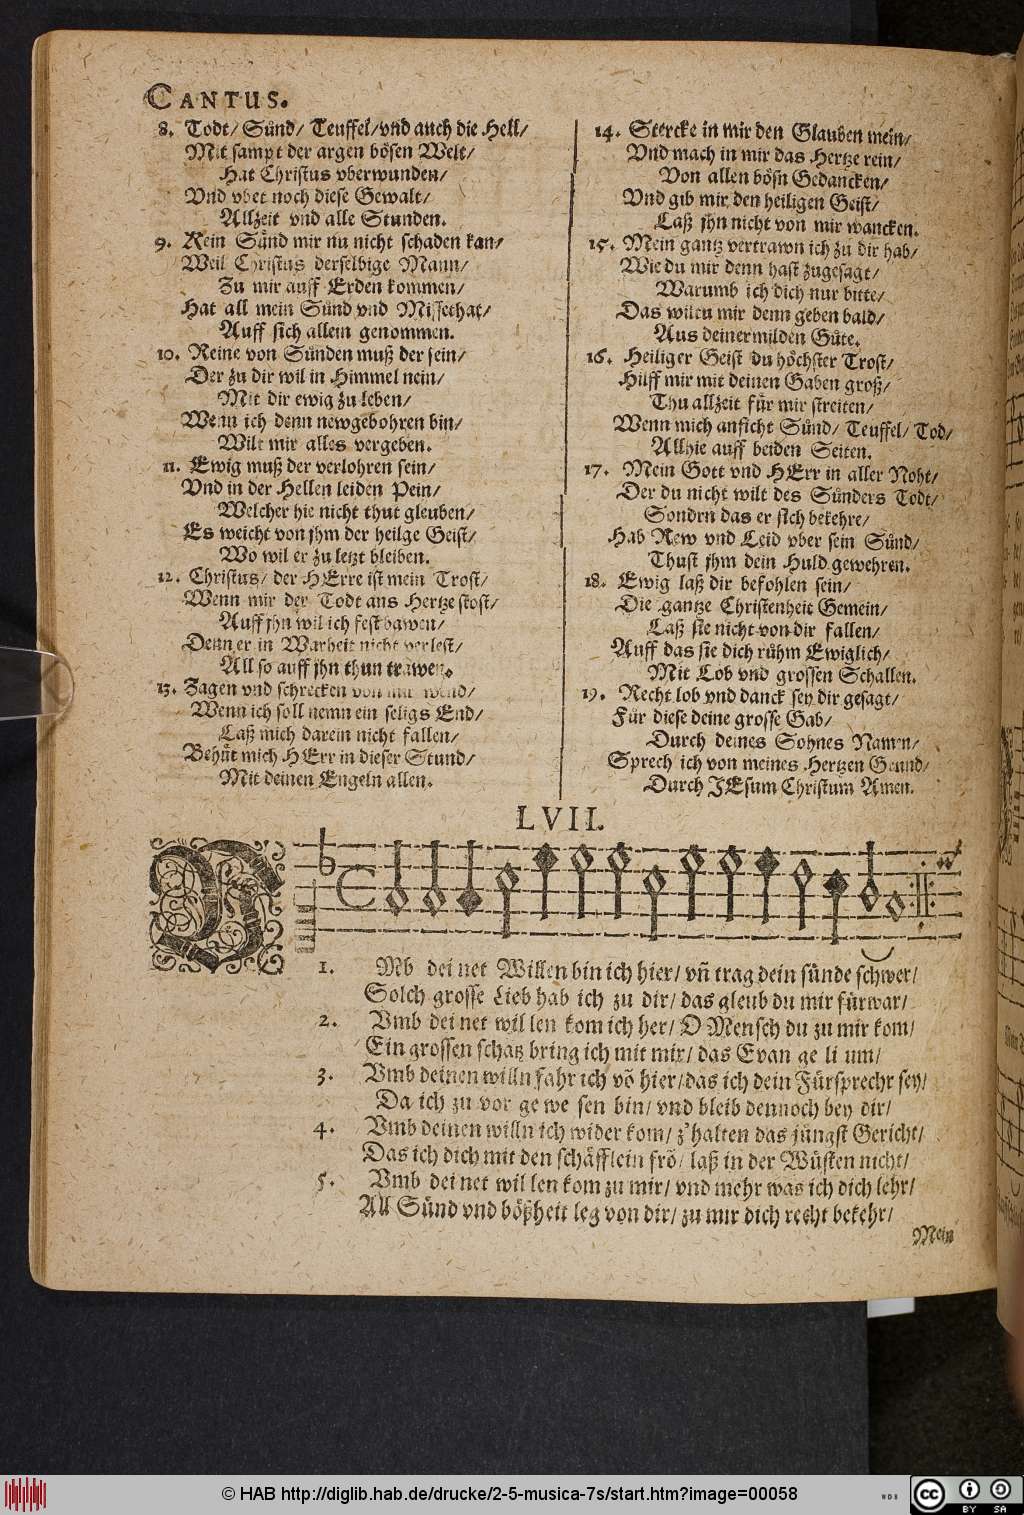 CANTUS.
8. Todt/ Sünd/ Teuffel/vnd auch die Hell/
Mit sampt der argen bösen Welt/
Hat Christus vberwunden/
Vnd vbet noch diese Gewalt/
Allzeit vnd alle Stunden.
9. Kein Sünd mir nu nicht schaden kan/
Weil Christus derselbige Mann/
Zu mir auff Erden kommen/
Hat all mein Sünd vnd Missethat/
Auff sich allein genommen.
10. Reine von Sünden muß der sein/
Der zu dir wil in Himmel nein/
Mit dir ewig zu leben/
Wenn ich denn newgebohren bin/
Wilt mir alles vergeben.
11. Ewig muß der verlohren sein/
Vnd in der Hellen leiden Pein/
Welcher hie nicht thut gleuben/
Es weicht von jhm der heilge Geist/
Wo wil er zu letzt bleiben.
12. Christus/ der HErre ist mein Trost/
Wenn mir der Todt ans Hertze stost/
Auff jhn wil ich fest bawen/
Denn er in Warheit nicht verlest/
All so auff jhn thun trawen.
13. Zagen vnd schrecken von mir wend/
Wenn ich soll nemn ein seligs End/
Laß mich darein nicht fallen/
Behüt mich HErr in dieser Stund/
Mit deinen Engeln allen.
14. Stercke in mir den Glauben mein/
Vnd mach in mir das Hertze rein/
Von allen bösn Gedancken/
Vnd gib mir den heiligen Geist/
Laß jhn nicht von mir wancken.
15. Mein gantz vertrawn ich zu dir hab/
Wie du mir denn hast zugesagt/
Warumb ich dich nur bitte/
Das wiltu mir denn geben bald/
Aus deiner milden Güte.
16. Heiliger Geist du höchster Trost/
Hilff mir mit deinen Gaben groß/
Thu allzeit für mir streiten/
Wenn mich anficht Sünd/ Teuffel/ Tod/
Allhie auff beiden Seiten.
17. Mein Gott vnd HErr in aller Noht/
Der du nicht wilt des Sünders Todt/
Sondrn das er sich bekehre/
Hab Rew vnd Leid vber sein Sünd/
Thust jhm dein Huld gewehren.
18. Ewig laß dir befohlen sein/
Die gantze Christenheit Gemein/
Laß sie nicht von dir fallen/
Auff das sie dich rühm Ewiglich/
Mit Lob vnd grossen Schallen.
19. Recht lob vnd danck sey dir gesagt/
Für diese deine grosse Gab/
Durch deines Sohnes Namen/
Sprech ich von meines Hertzen Grund/
Durch JEsum Christum Amen.
LVII.
V
1. Mb dei net Willen bin ich hier/ vñ trag dein sünde schwer/
Solch grosse Lieb hab ich zu dir/ das gleub du mir fürwar/
2. Vmb dei net wil len kom ich her/ O Mensch du zu mir kom/
Ein grossen schatz bring ich mit mir/ das Evan ge li um/
3. Vmb deinen willn fahr ich võ hier/das ich dein Fürsprechr sey/
Da ich zu vor ge we sen bin/ vnd bleib dennoch bey dir/
4. Vmb deinen willn ich wider kom/ z'halten das jüngst Gericht/
Das ich dich mit den schäfflein frõ/ laß in der Wüsten nicht/
5. Vmb dei net wil len kom zu mir/ vnd mehr was ich dich lehr/
All Sünd vnd bößheit leg von dir/ zu mir dich recht bekehr/
Mein
© HAB http://diglib.hab.de/drucke/2-5-musica-7s/start.htm?image=00058
WDB
cc
BY SA